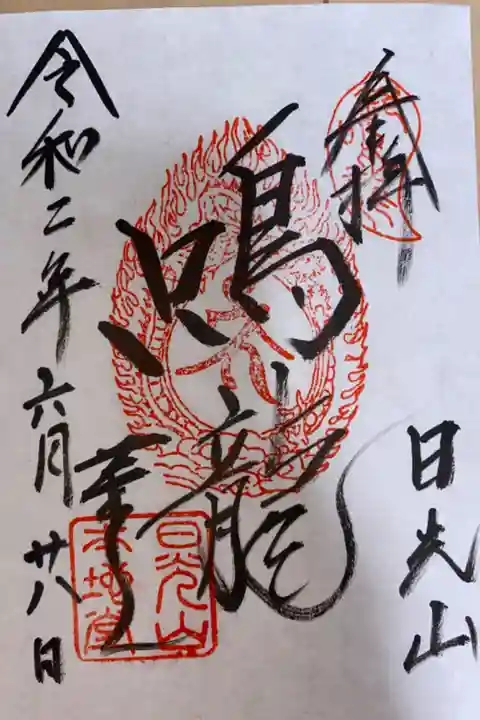 奉拝
日光山
鳴龍
令和二年六月廿八日
日光山
本地堂